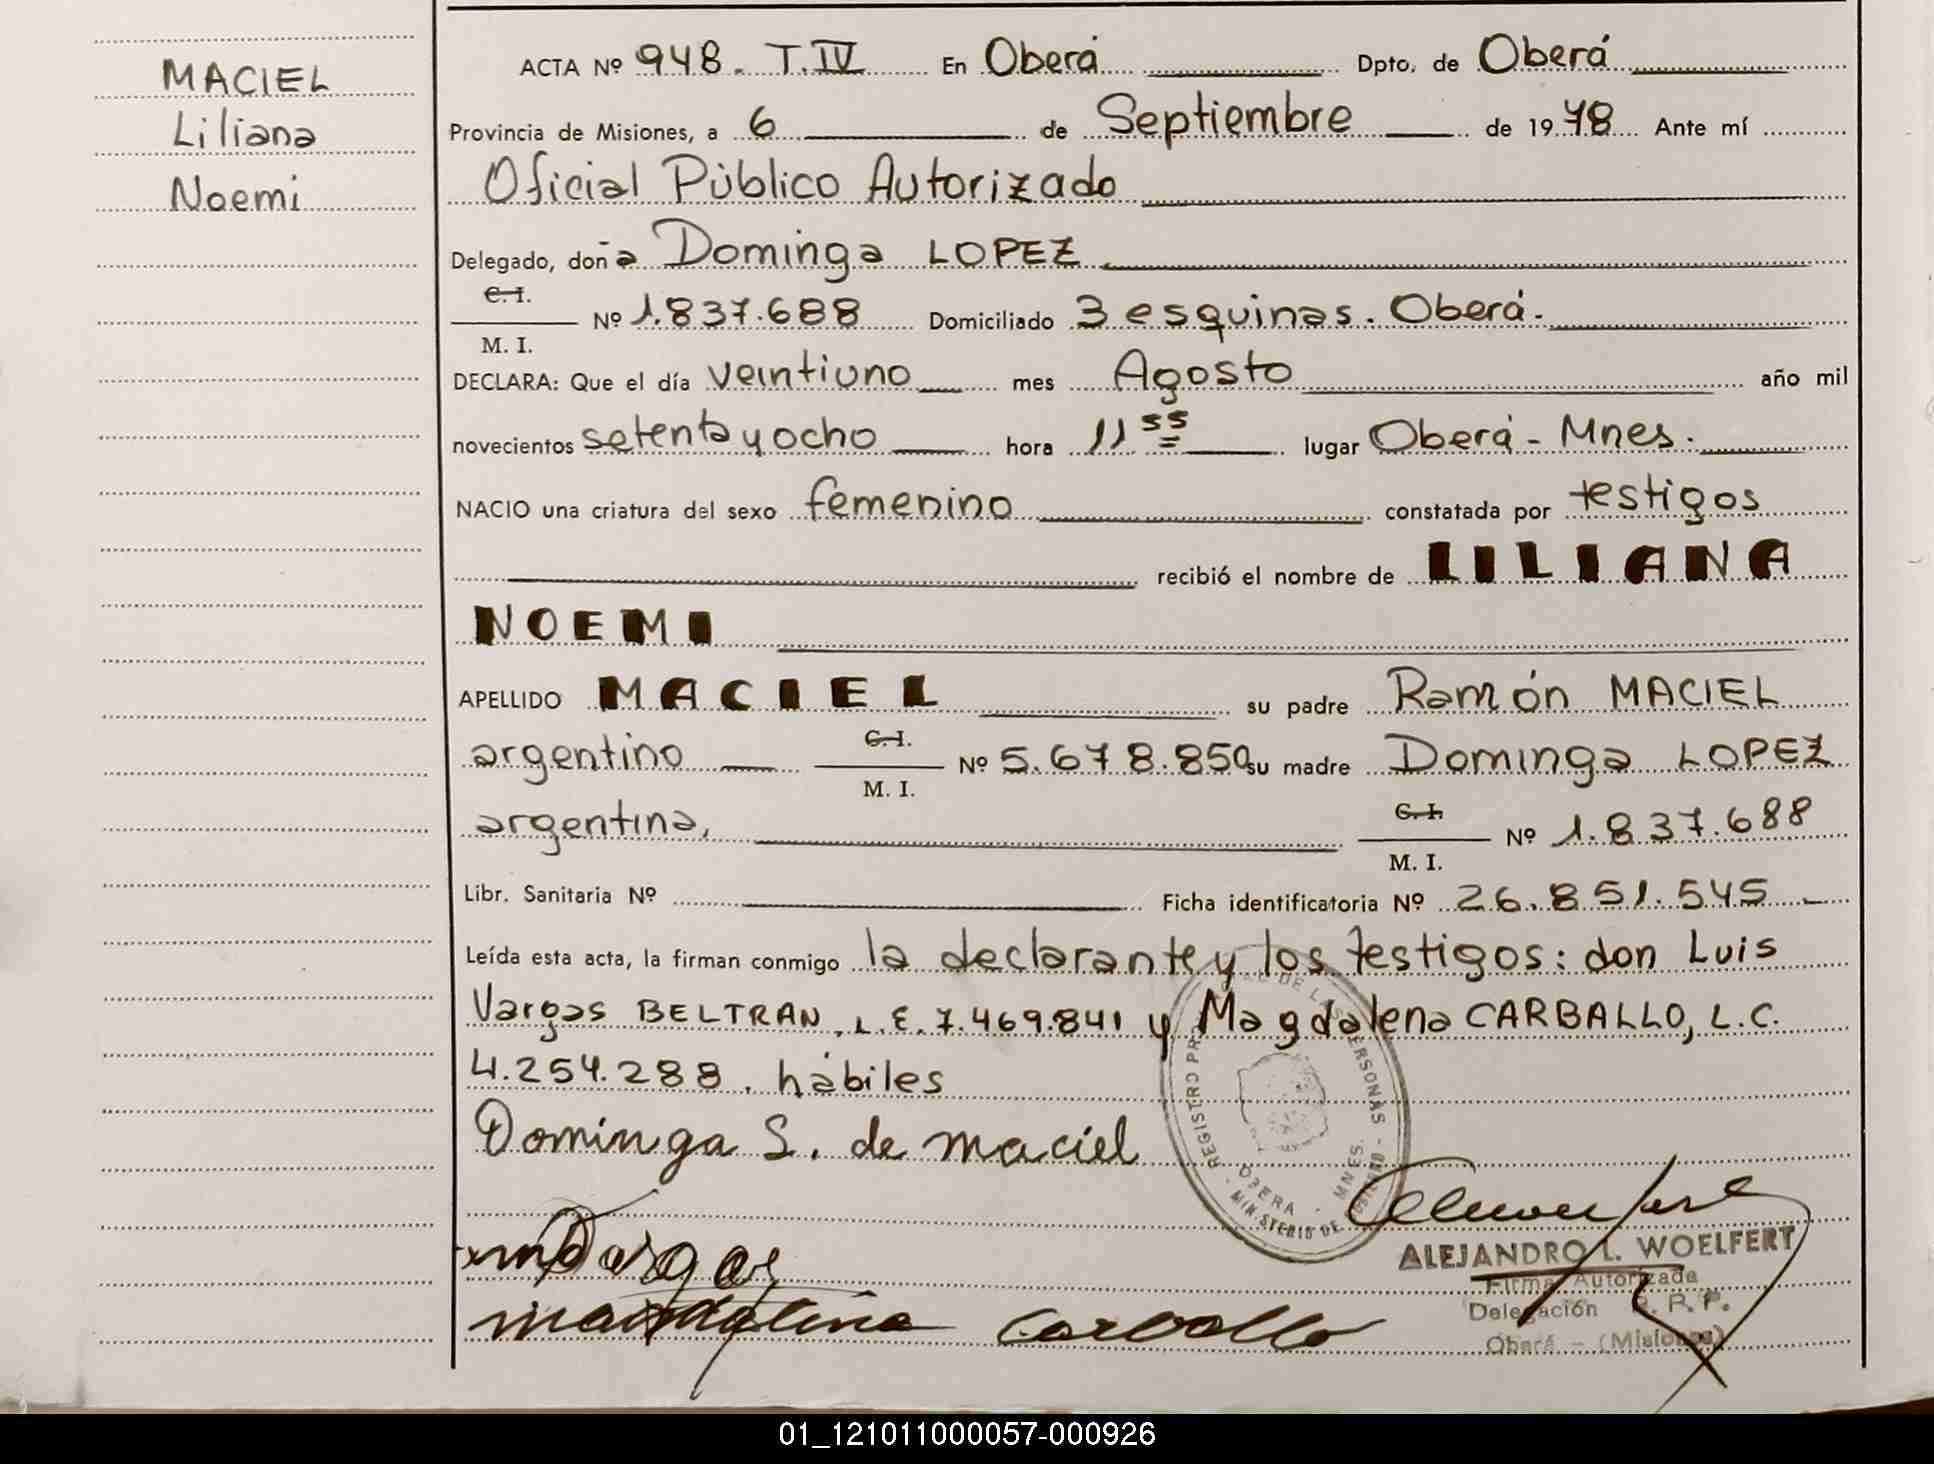 MACIEL
Liliana
Noemi
ACTA Nº 948. T.IV En Oberá Dpto. de Oberá
Provincia de Misiones, a 6 de Septiembre de 1978 Ante mí
Oficial Público Autorizado
Delegado, doña Dominga LOPEZ
C.I.
M. I.
Nº 1.837.688 Domiciliado 3 esquinas. Oberá.
DECLARA: Que el día veintiuno mes Agosto año mil
novecientos setenta y ocho hora 11 55 lugar Oberá - Mnes.
NACIO una criatura del sexo femenino constatada por testigos
recibió el nombre de LILIANA
NOEMI
APELLIDO MACIEL su padre Ramón MACIEL
argentino C.I. M. I. Nº 5.678.850 su madre Dominga LOPEZ
argentina, C.I. M. I. Nº 1.837.688
Libr. Sanitaria Nº Ficha identificatoria Nº 26.851.545
Leída esta acta, la firman conmigo la declarante y los testigos: don Luis
Vargas BELTRAN, L.E. 7.469.841 y Magdalena CARBALLO, L.C.
4.254.288. hábiles
Dominga L. de maciel
REGISTRO DE LAS PERSONAS
OBERA - MNES.
MINISTERIO DE
Vargas
magdalena Carballo
ALEJANDRO L. WOELFERT
Firma Autorizada
Delegación R. P. P.
Oberá - (Misiones)
01_121011000057-000926